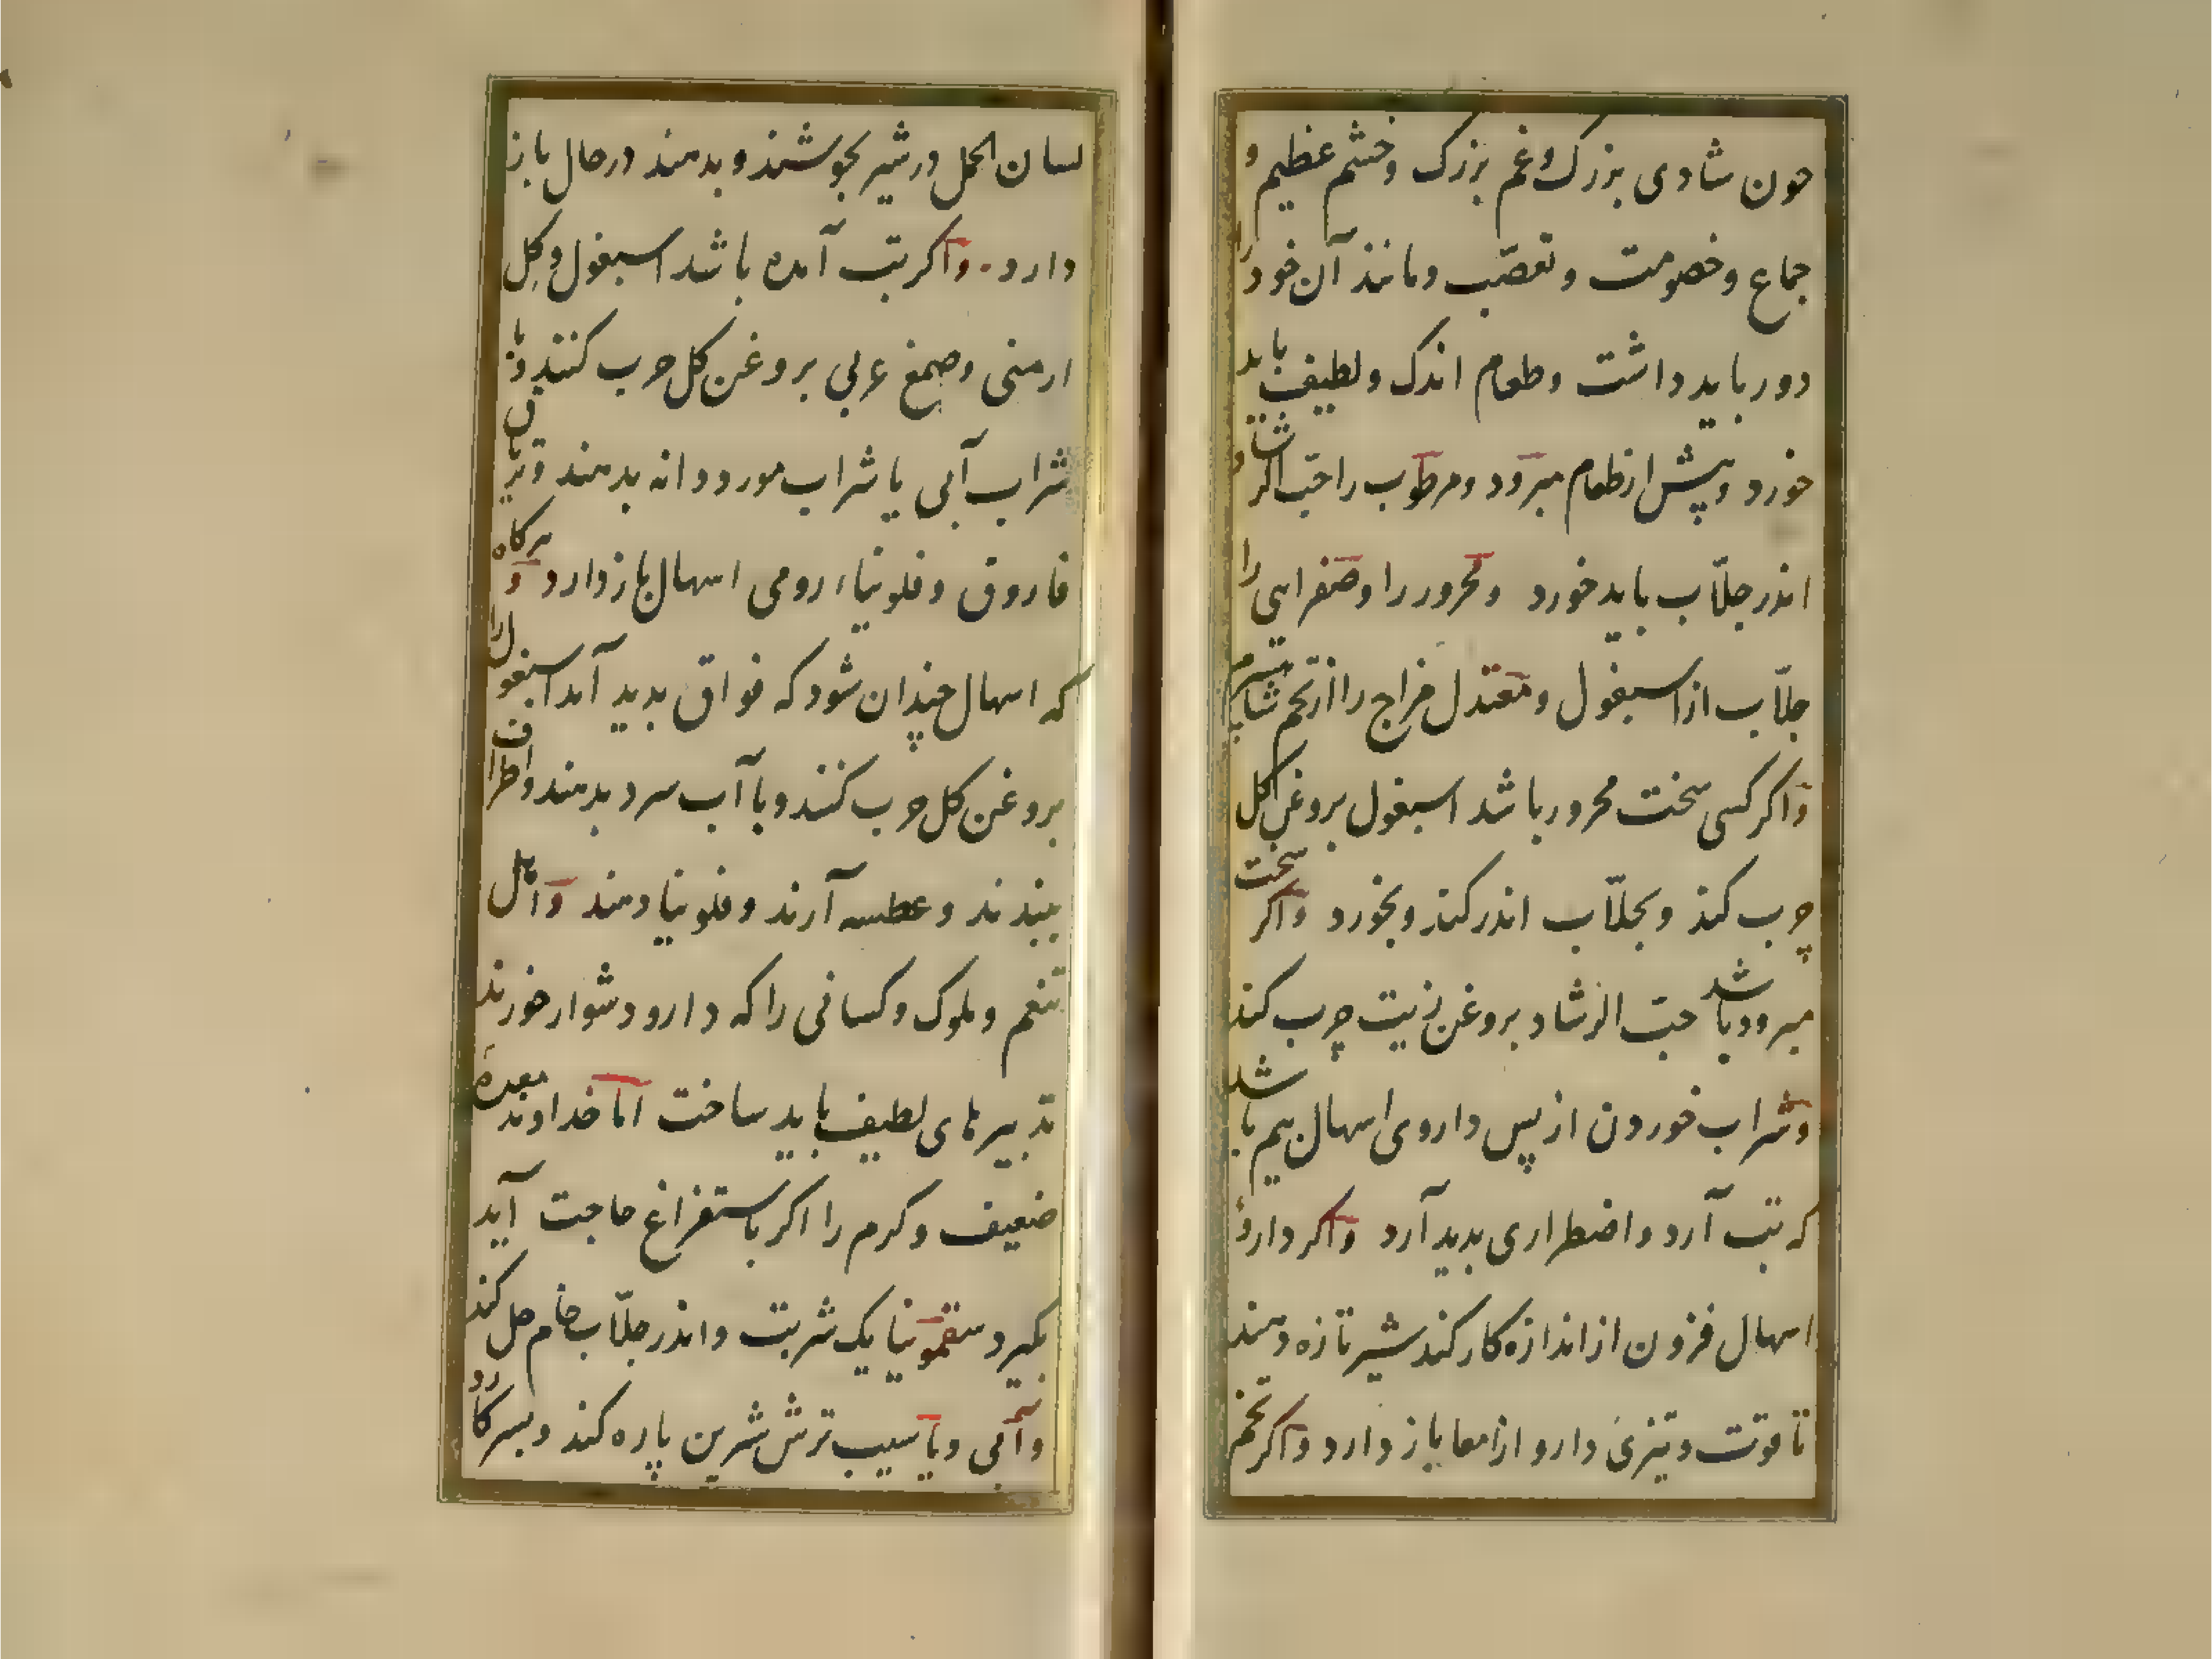 حون شادی بزرک وغم بزرک وخشم عظیم و
جماع وخصومت وتعصّب ومانند آن خود را
دور باید داشت وطعام اندک ولطیف باید
خورد وپیش از طعام مبرود ومرطوب را حبّ الرشاد
اندر جلّاب باید خورد ومحرور را وصفرایی را
جلّاب از اسبغول ومعتدل مزاج را از تخم شاهسپرم
واکر کسی سخت محرور باشد اسبغول بروغن کل
چرب کند وبجلّاب اندر کند وبخورد واکر سخت
مبرود باشد حبّ الرشاد بروغن زیت چرب کند
وشراب خوردن از پس داروی اسهال بیم باشد
که تب آرد واضطراری بدید آرد واکر داروء
اسهال فزون از اندازه کار کند شیر تازه دهند
تا قوّت وتیزی دارو از امعا باز دارد واکر تخم
لسان الحمل در شیر بجوشند وبدهند در حال باز
دارد. واکر تب آمده باشد اسبغول وکل
ارمنی وصمغ عربی بروغن کل حرب کنند وبا
شراب آبی یا شراب مورددانه بدهند وتریاق
فاروق وفلونیاء رومی اسهال باز دارد وهرکاه
که اسهال چندان شود که فواق بدید آمد اسبغول را
بروغن کل حرب کنند وبا آب سرد بدهند واطراف
ببندند وعطسه آرند وفلونیا دهند واهل
تنعم وملوک وکسانی را که دارو دشوار خورند
تدبیرهای لطیف باید ساخت امّا خداوند معدهٔ
ضعیف وکرم را اکر باستفراغ حاجت آید
بکیرد سقمونیا یک شربت واندر جلّاب خام حل کند
وآبی ویا سیب ترش شرین پاره کند وبسر کارد